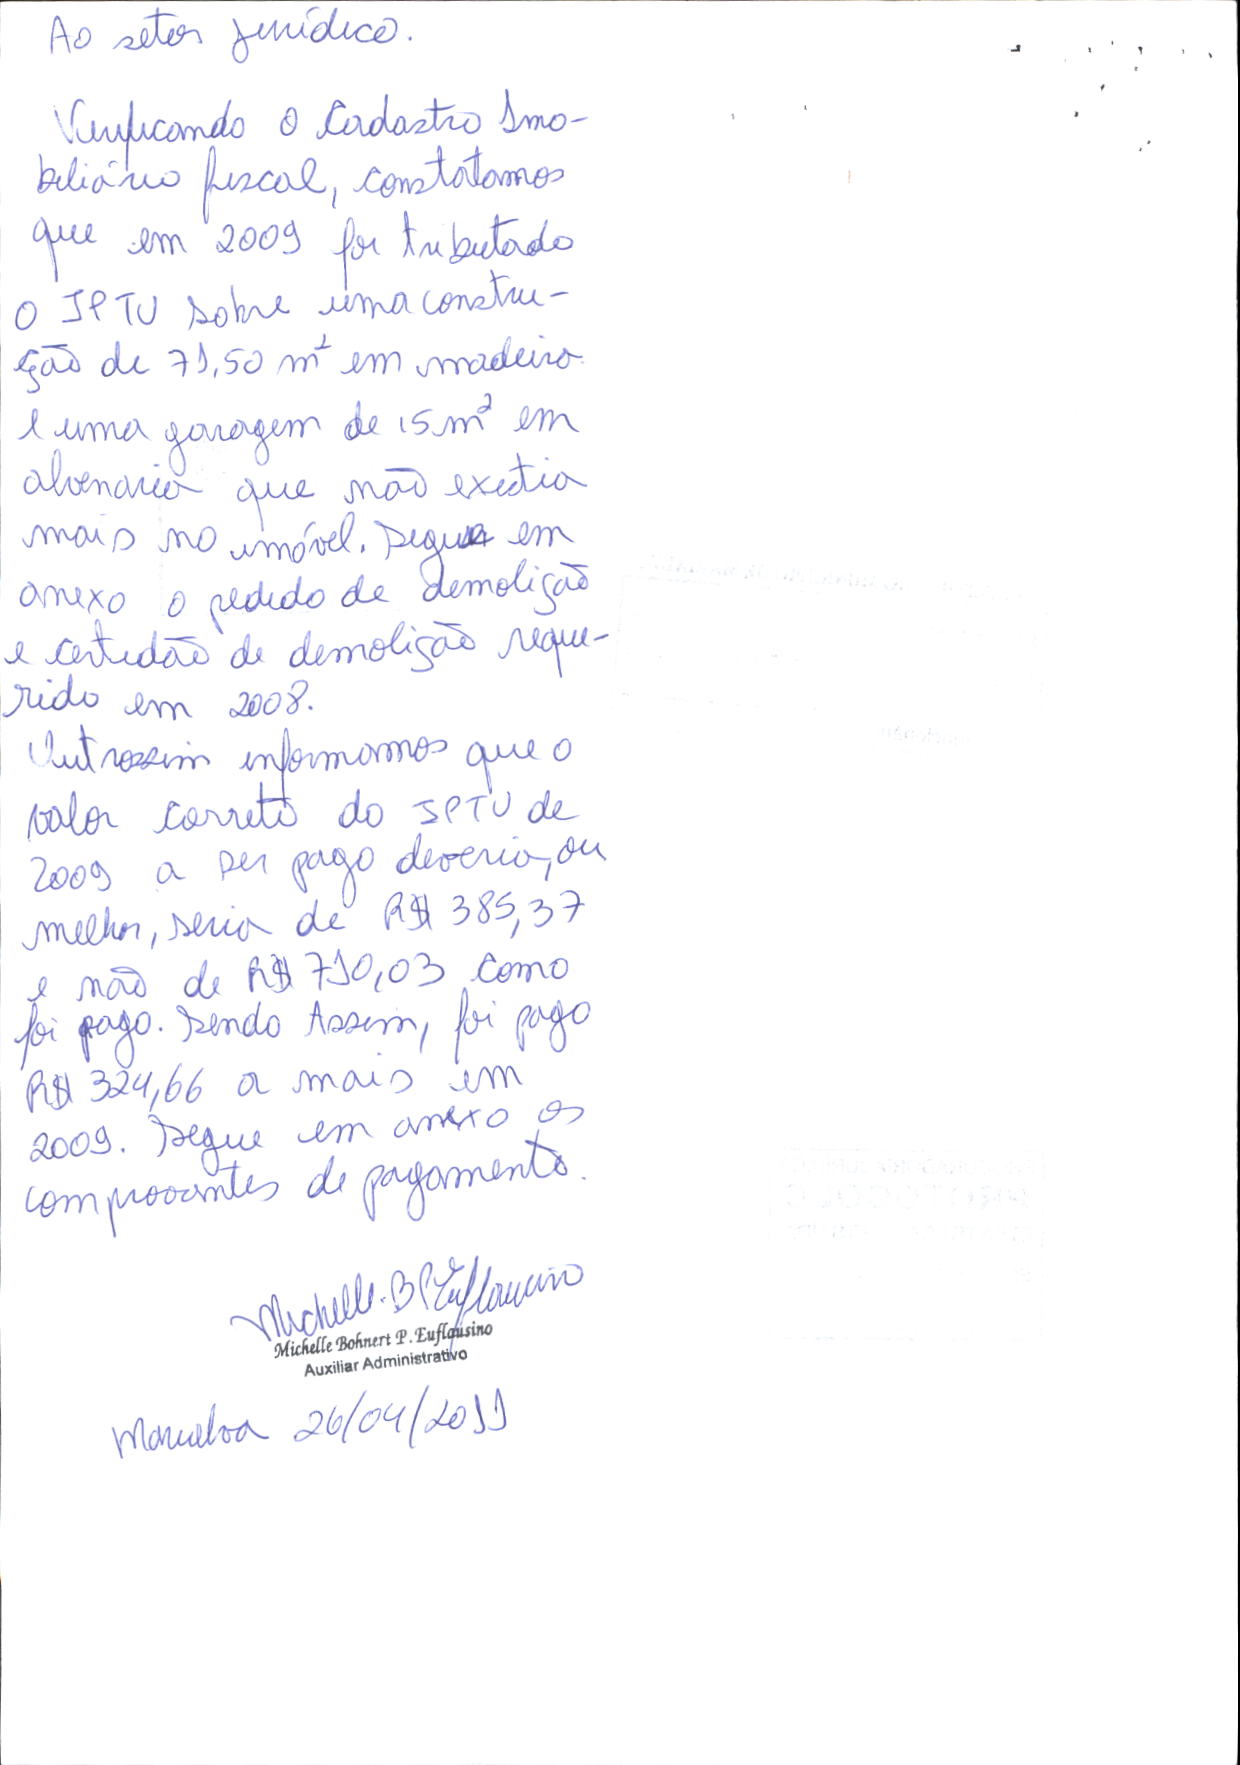 Ao setor jurídico.
Verificando o Cadastro Imo-
biliário fiscal, constatamos
que em 2009 foi tributado
o IPTU sobre uma constru-
ção de 71,50 m² em madeira
e uma garagem de 15 m² em
alvenaria que não existia
mais no imóvel. Segue em
anexo o pedido de demolição
e certidão de demolição reque-
rido em 2008.
Outrossim informamos que o
valor correto do IPTU de
2009 a ser pago deveria, ou
melhor, seria de R$ 385,37
e não de R$ 710,03 como
foi pago. Sendo Assim, foi pago
R$ 324,66 a mais em
2009. Segue em anexo os
comprovantes de pagamento.
Michelle B P Euflausino
Michelle Bohnert P. Euflausino
Auxiliar Administrativo
26/04/2011